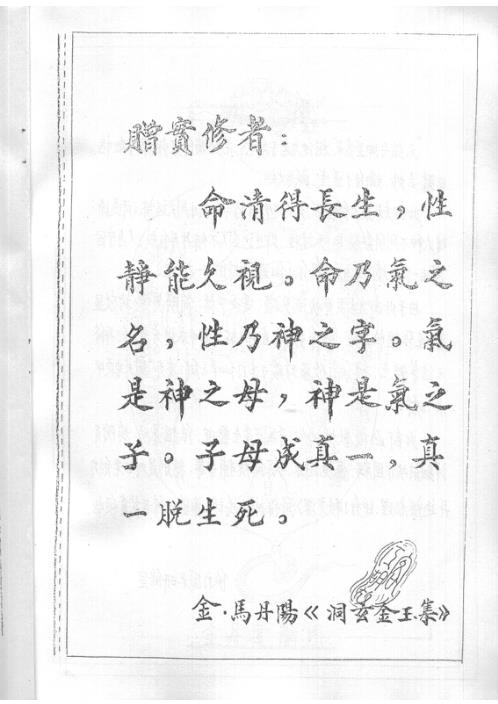 贈實修者：
命清得長生，性
靜能久視。命乃氣之
名　性乃神之字。氣
是神之母，神是氣之
子。子母成真一　真
一脫生死。
金·馬丹陽《洞玄金玉集》